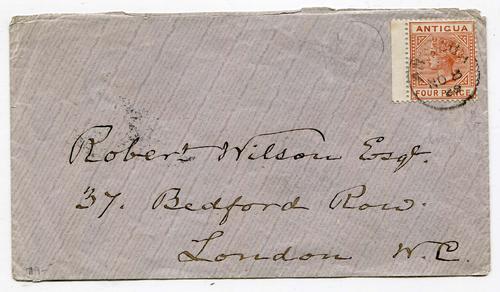 ANTIGUA
FOUR PENCE
Robert Wilson Esqr.
37. Bedford Row.
London W.C.